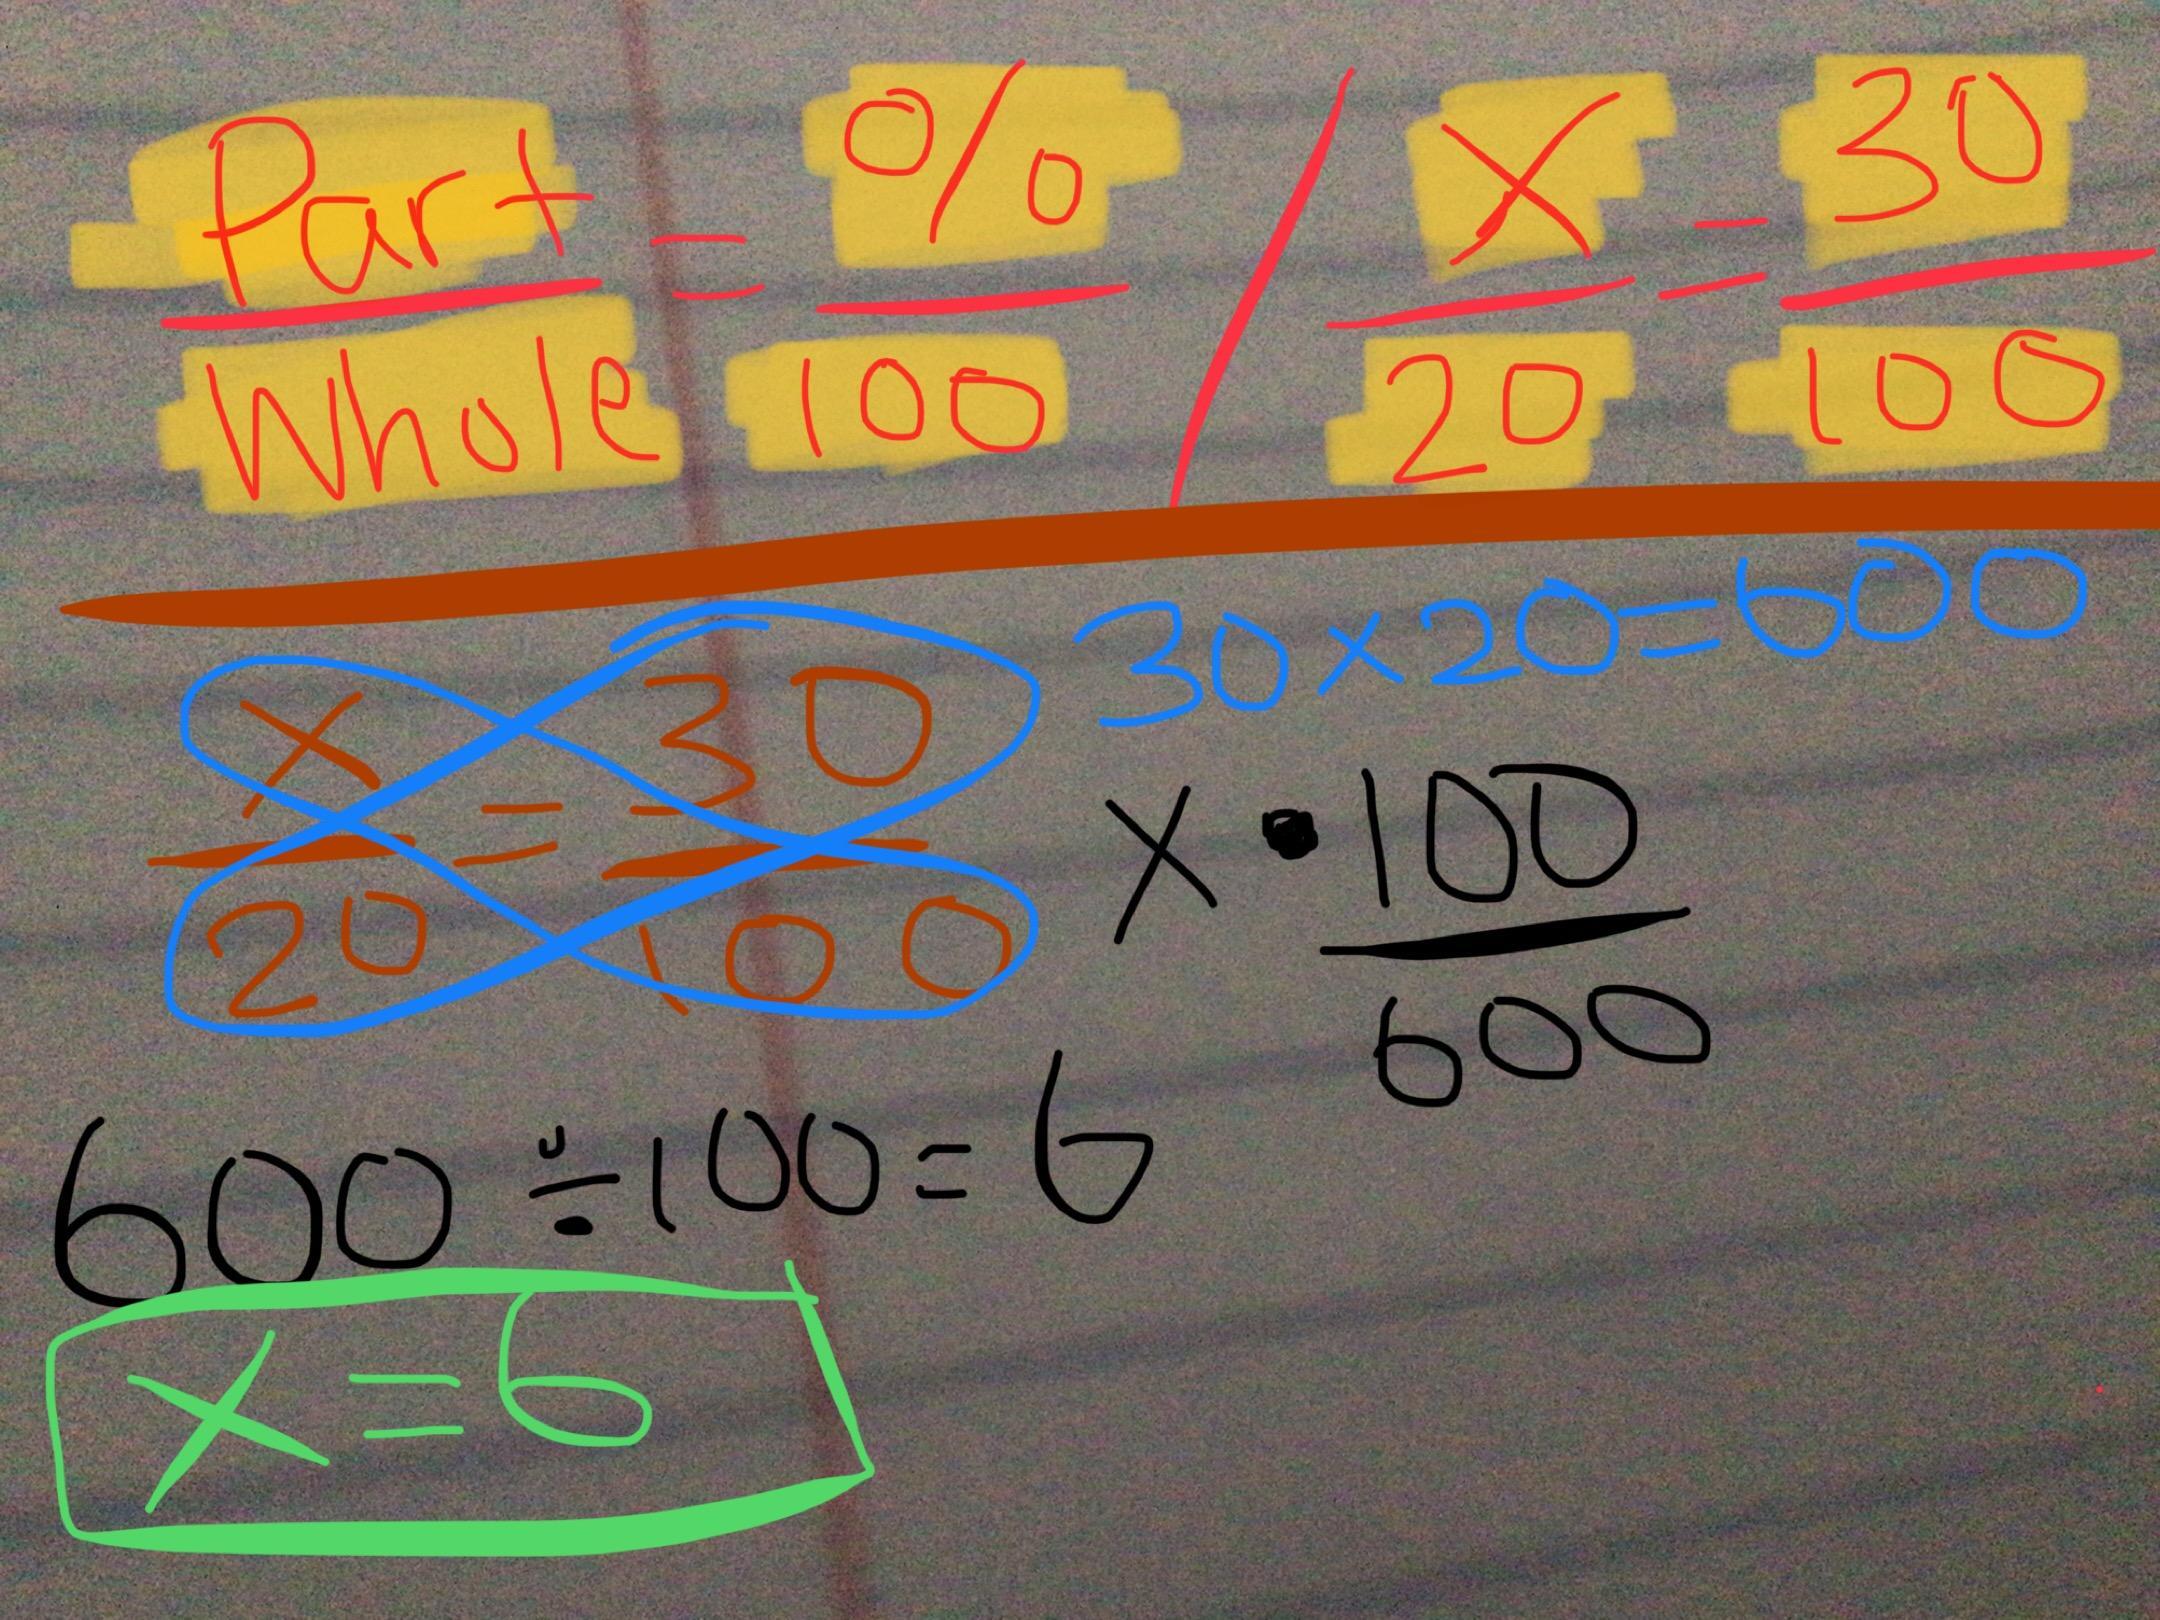 Part/Whole = %/100 / x/20 = 30/100
x/20 = 30/100
30x20=600
x • 100/600
600 ÷ 100 = 6
x = 6